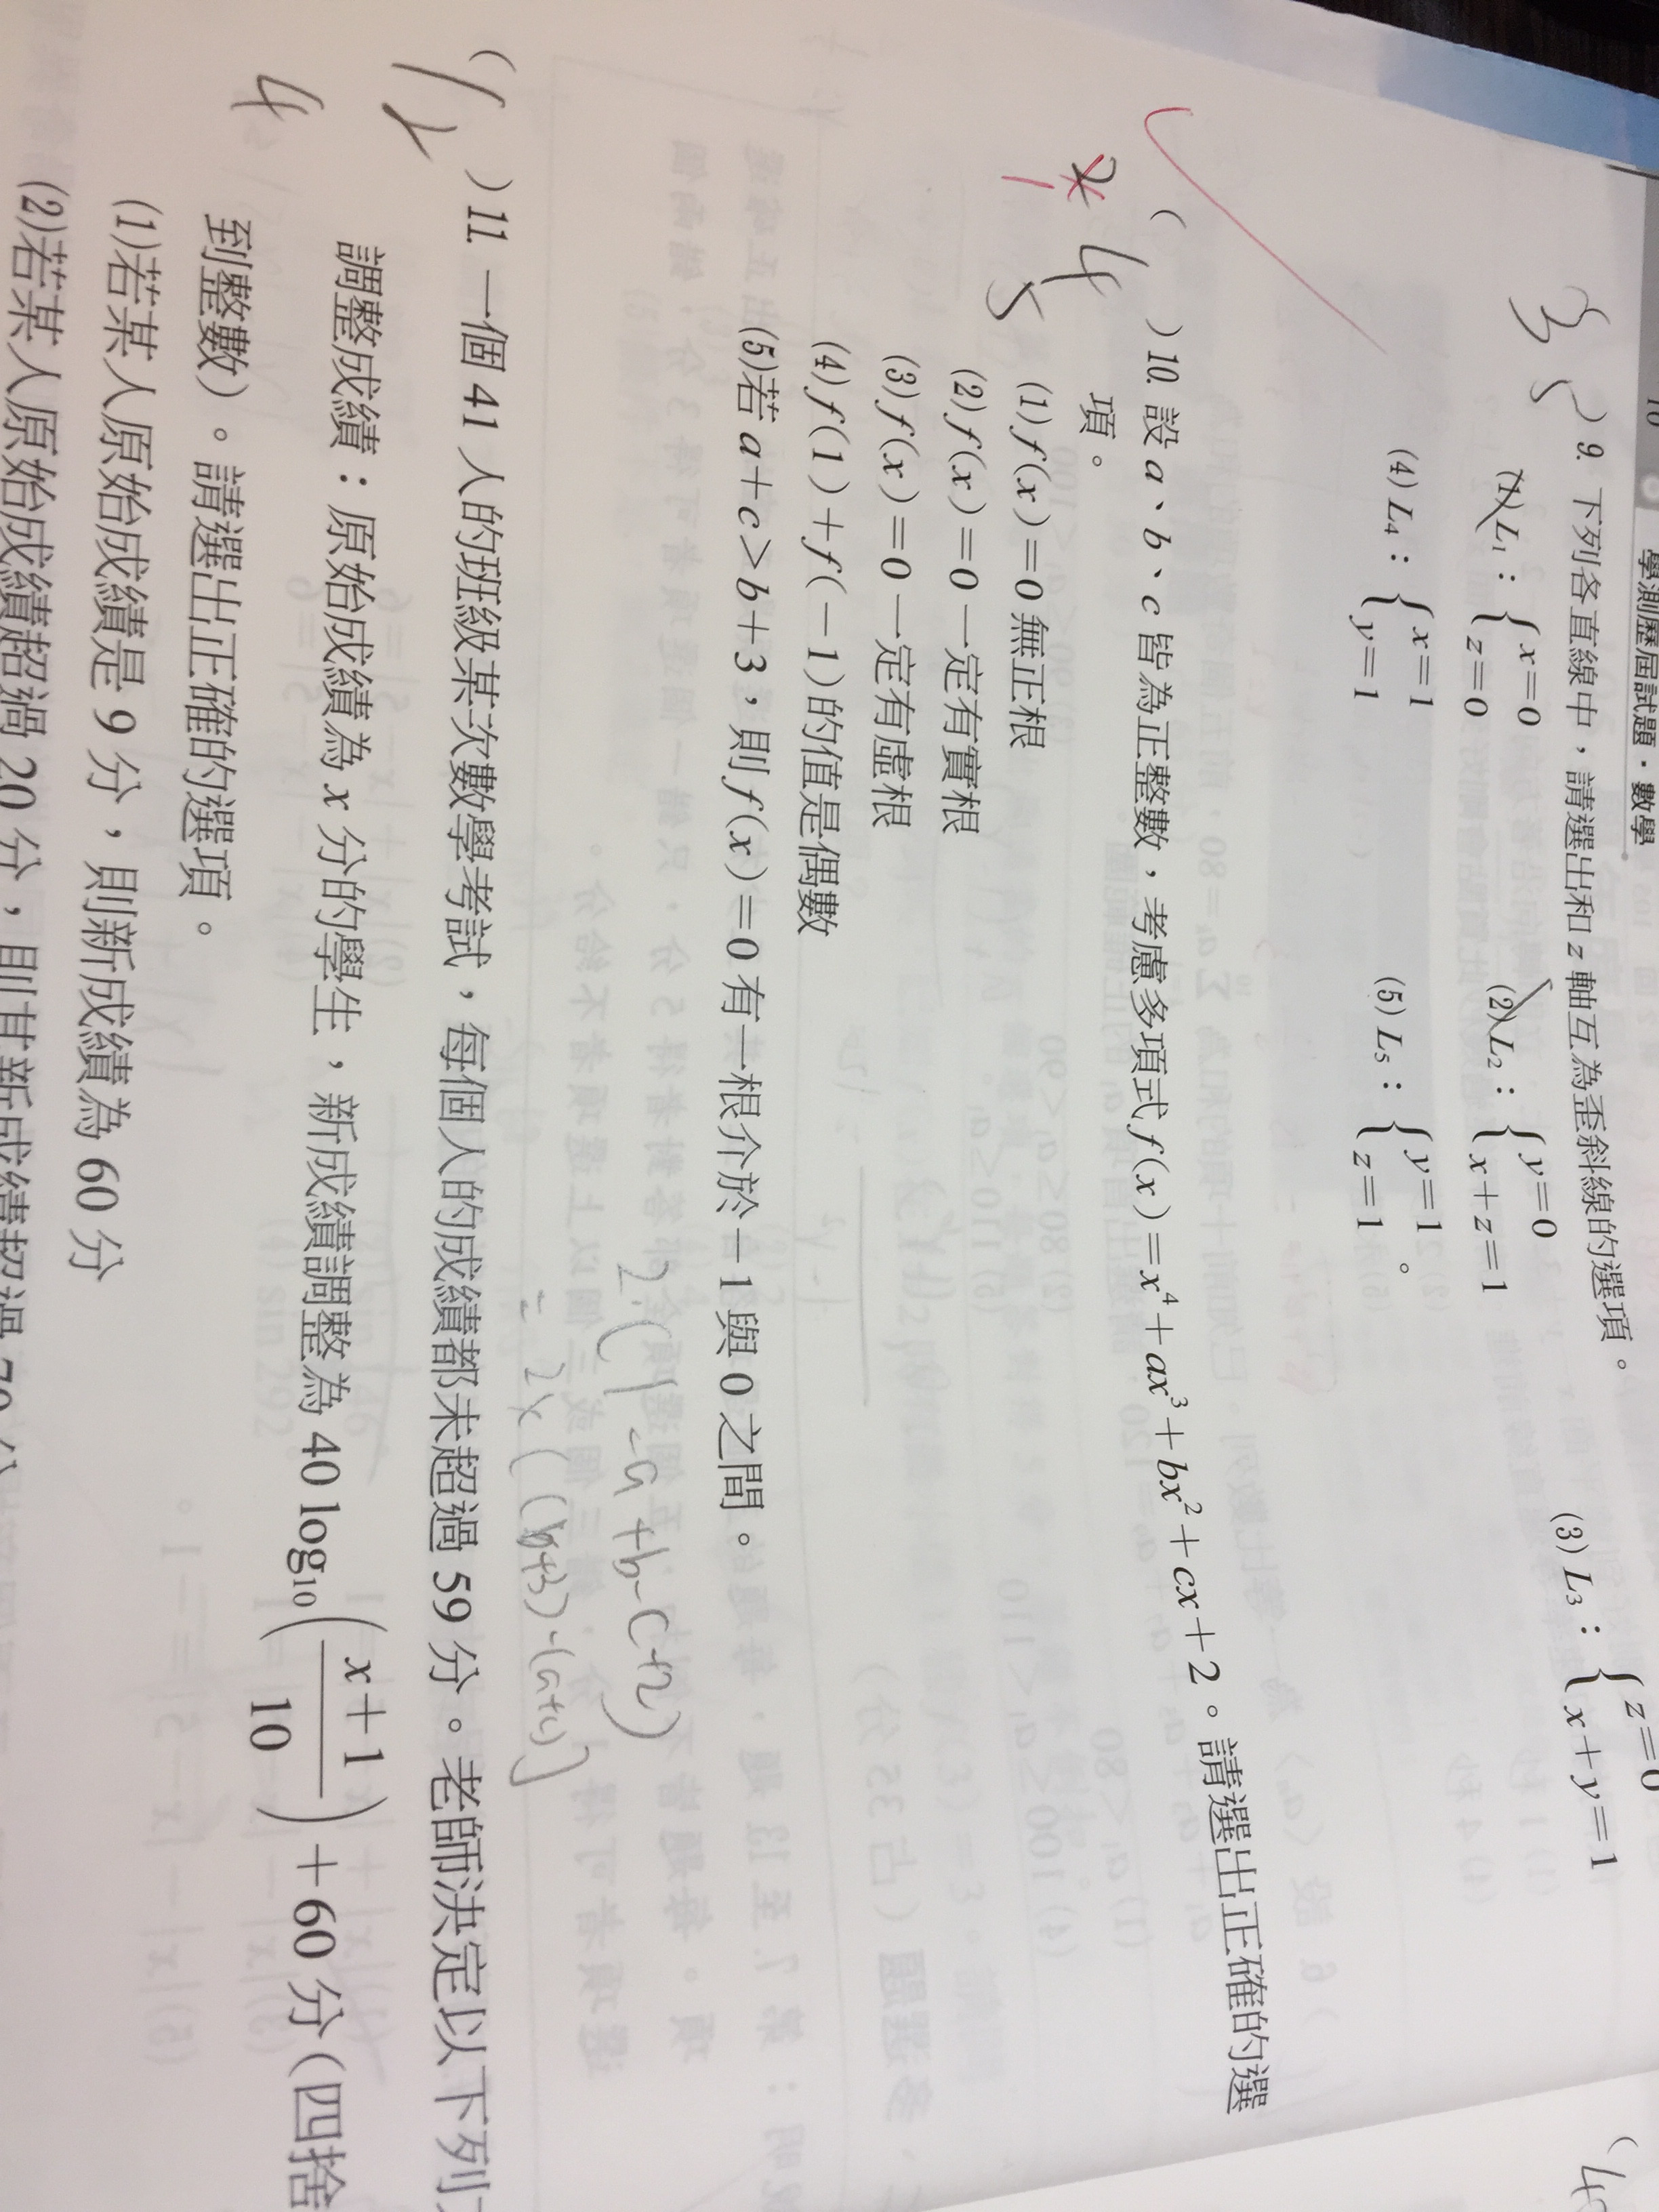 10 學測歷屆試題・數學
3 5 ) 9. 下列各直線中,請選出和 z 軸互為歪斜線的選項。
(1) L₁:{x=0 z=0 (2) L₂:{y=0 x+z=1 (3) L₃:{z=0 x+y=1
(4) L₄:{x=1 y=1 (5) L₅:{y=1 z=1 。
( 1 4 5 ) 10. 設 a、b、c 皆為正整數,考慮多項式 f(x)=x⁴+ax³+bx²+cx+2。請選出正確的選
項。
(1) f(x)=0 無正根
(2) f(x)=0 一定有實根
(3) f(x)=0 一定有虛根
(4) f(1)+f(−1)的值是偶數
(5)若 a+c>b+3,則 f(x)=0 有一根介於−1 與 0 之間。
2(1-a+b-c+2)
= 2×[(b+3)-(a+c)]
( ) 11. 一個 41 人的班級某次數學考試,每個人的成績都未超過 59 分。老師決定以下列
4
調整成績:原始成績為 x 分的學生,新成績調整為 40 log₁₀((x+1)/10)+60 分(四捨
到整數)。請選出正確的選項。
(1)若某人原始成績是 9 分,則新成績為 60 分
(2)若某人原始成績超過 20 分,則其新成績超過 70 分